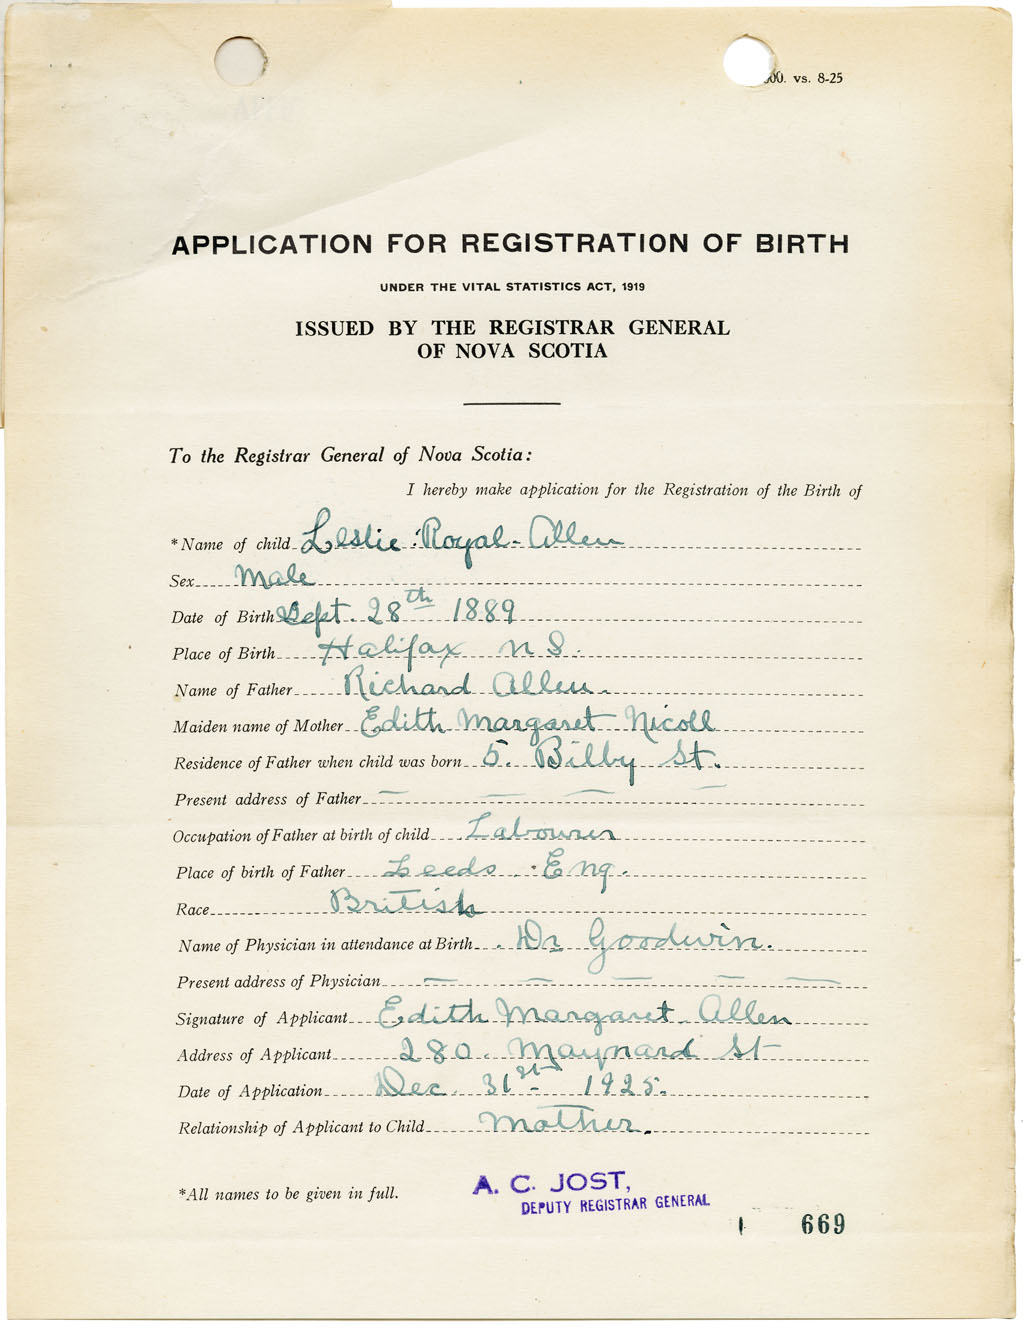 00. vs. 8-25
APPLICATION FOR REGISTRATION OF BIRTH
UNDER THE VITAL STATISTICS ACT, 1919
ISSUED BY THE REGISTRAR GENERAL
OF NOVA SCOTIA
To the Registrar General of Nova Scotia:
I hereby make application for the Registration of the Birth of
*Name of child Leslie Royal Allen
Sex Male
Date of Birth Sept. 28th 1889
Place of Birth Halifax N S.
Name of Father Richard Allen
Maiden name of Mother Edith Margaret Nicoll
Residence of Father when child was born 5. Bilby St.
Present address of Father — — — —
Occupation of Father at birth of child Labourer
Place of birth of Father Leeds Eng.
Race British
Name of Physician in attendance at Birth Dr Goodwin.
Present address of Physician — — — — —
Signature of Applicant Edith Margaret Allen
Address of Applicant 280. Maynard St
Date of Application Dec. 31st 1925.
Relationship of Applicant to Child Mother.
*All names to be given in full.
A. C. JOST,
DEPUTY REGISTRAR GENERAL
669